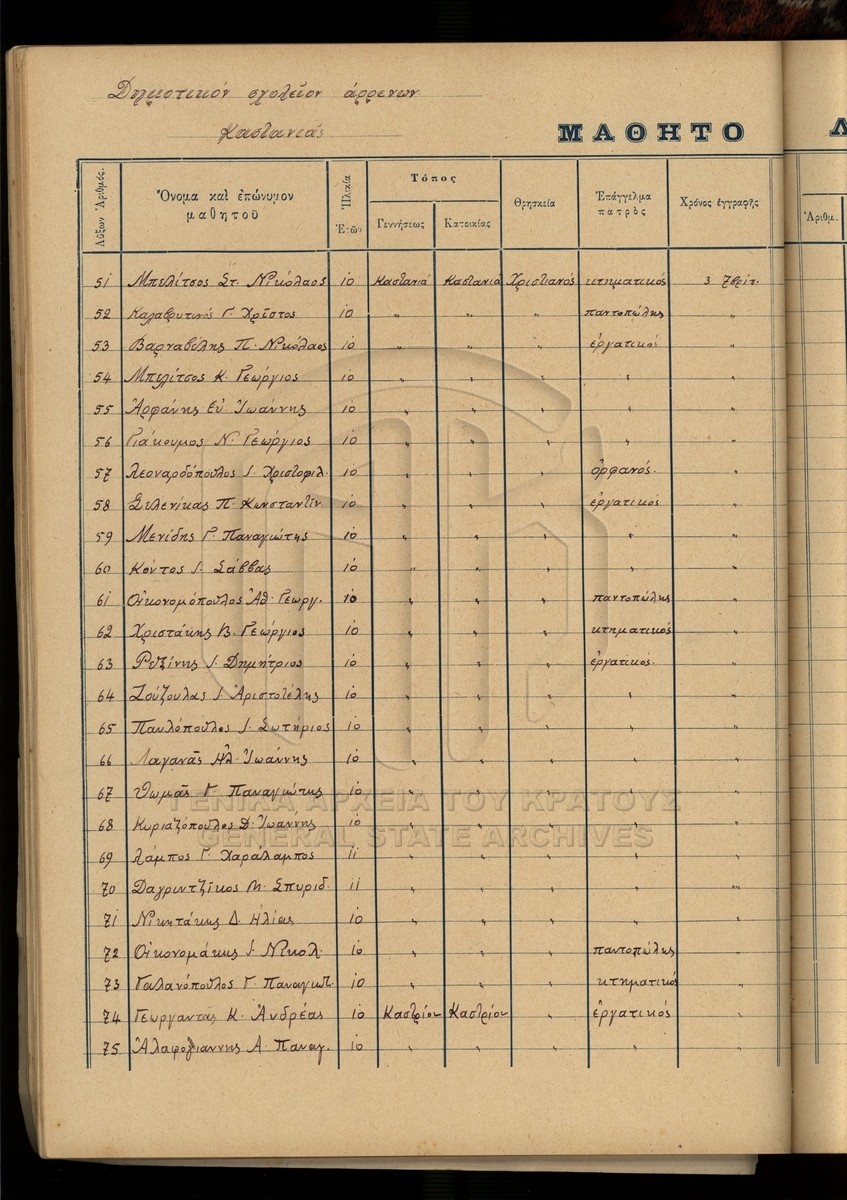 Δημοτικόν σχολεῖον ἀρρένων
Καστανιᾶς
ΜΑΘΗΤΟ
Αὔξων Ἀριθμός. Ὄνομα καὶ ἐπώνυμον μαθητοῦ Ἡλικία Ἐτῶν Τόπος Γεννήσεως Κατοικίας Θρησκεία Ἐπάγγελμα πατρὸς Χρόνος ἐγγραφῆς Ἀριθμ.
51 Μπελίτσος Στ. Νικόλαος 10 Καστανιά Καστανιά Χριστιανός κτηματικός 3 7βρίου
52 Καλαβρυτινός Γ. Χρῖστος 10 " " " παντοπώλης "
53 Βαρναβίλης Π. Νικόλαος 10 " " " ἐργατικός "
54 Μπελίτσος Κ. Γεώργιος 10 " " " " "
55 Ἀρφάνης Εὐ. Ἰωάννης 10 " " " " "
56 Γιάκουμος Ν. Γεώργιος 10 " " " " "
57 Λεοναρδόπουλος Ι. Χριστοφιλ. 10 " " " ὀρφανός. "
58 Συλενίκας Π. Κωνσταντῖν. 10 " " " ἐργατικός "
59 Μενίδης Γ. Παναγιώτης 10 " " " " "
60 Κόντος Ι. Σάββας 10 " " " " "
61 Οἰκονομόπουλος Ἀθ. Γεωργ. 10 " " " παντοπώλης "
62 Χριστάκης Β. Γεώργιος 10 " " " κτηματικός "
63 Ρεζίνης Ι. Δημήτριος 10 " " " ἐργατικός. "
64 Ζούζουλας Ι. Ἀριστοτέλης 10 " " " " "
65 Παυλόπουλος Ι. Σωτήριος 10 " " " " "
66 Λαγανᾶς Ηλ. Ἰωάννης 10 " " " " "
67 Θωμᾶς Γ. Παναγιώτης 10 " " " " "
ΓΕΝΙΚΑ ΑΡΧΕΙΑ ΤΟΥ ΚΡΑΤΟΥΣ
68 Κυριαζόπουλος Δ. Ἰωάννης 10 " " " " "
GENERAL STATE ARCHIVES
69 Λάμπος Γ. Χαράλαμπος 11 " " " " "
70 Δαγριντζῖκος Μ. Σπυριδ. 11 " " " " "
71 Νικητάκης Δ. Ηλίας 10 " " " " "
72 Οἰκονομάκης Ι. Νικολ. 10 " " " παντοπώλης "
73 Γαλανόπουλος Γ. Παναγιώτ. 10 " " " κτηματικός "
74 Γεωργαντάς Κ. Ἀνδρέας 10 Καστρίον Καστρίον " ἐργατικός "
75 Ἀλαφογιαννης Α. Παναγ. 10 " " " " "